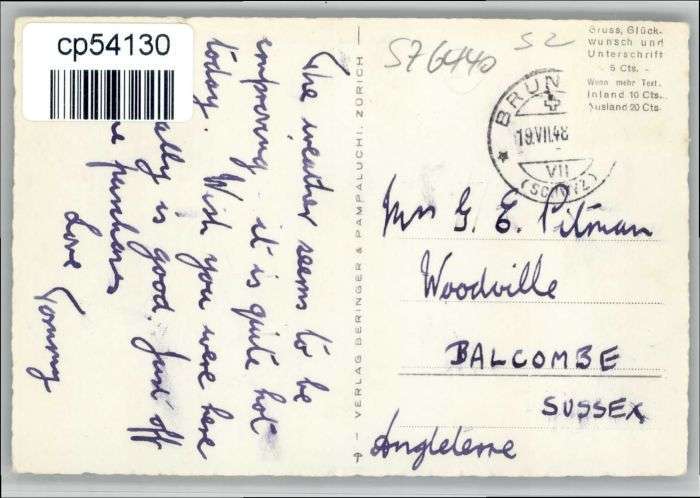 cp54130
The weather seems to be
improving. it is quite hot
today. Wish you were here
ally is good. Just off
purchases
Love
Tommy
VERLAG BERINGER & PAMPALUCHI, ZÜRICH
576440
52
BRUN
19.VII.48
VII
(SCHWYZ)
Gruss, Glück-
wunsch und
Unterschrift
- 5 Cts. -
Wenn mehr Text.
Inland 10 Cts.
Ausland 20 Cts.
Mrs G. E. Pitman
Woodville
BALCOMBE
SUSSEX
Angleterre